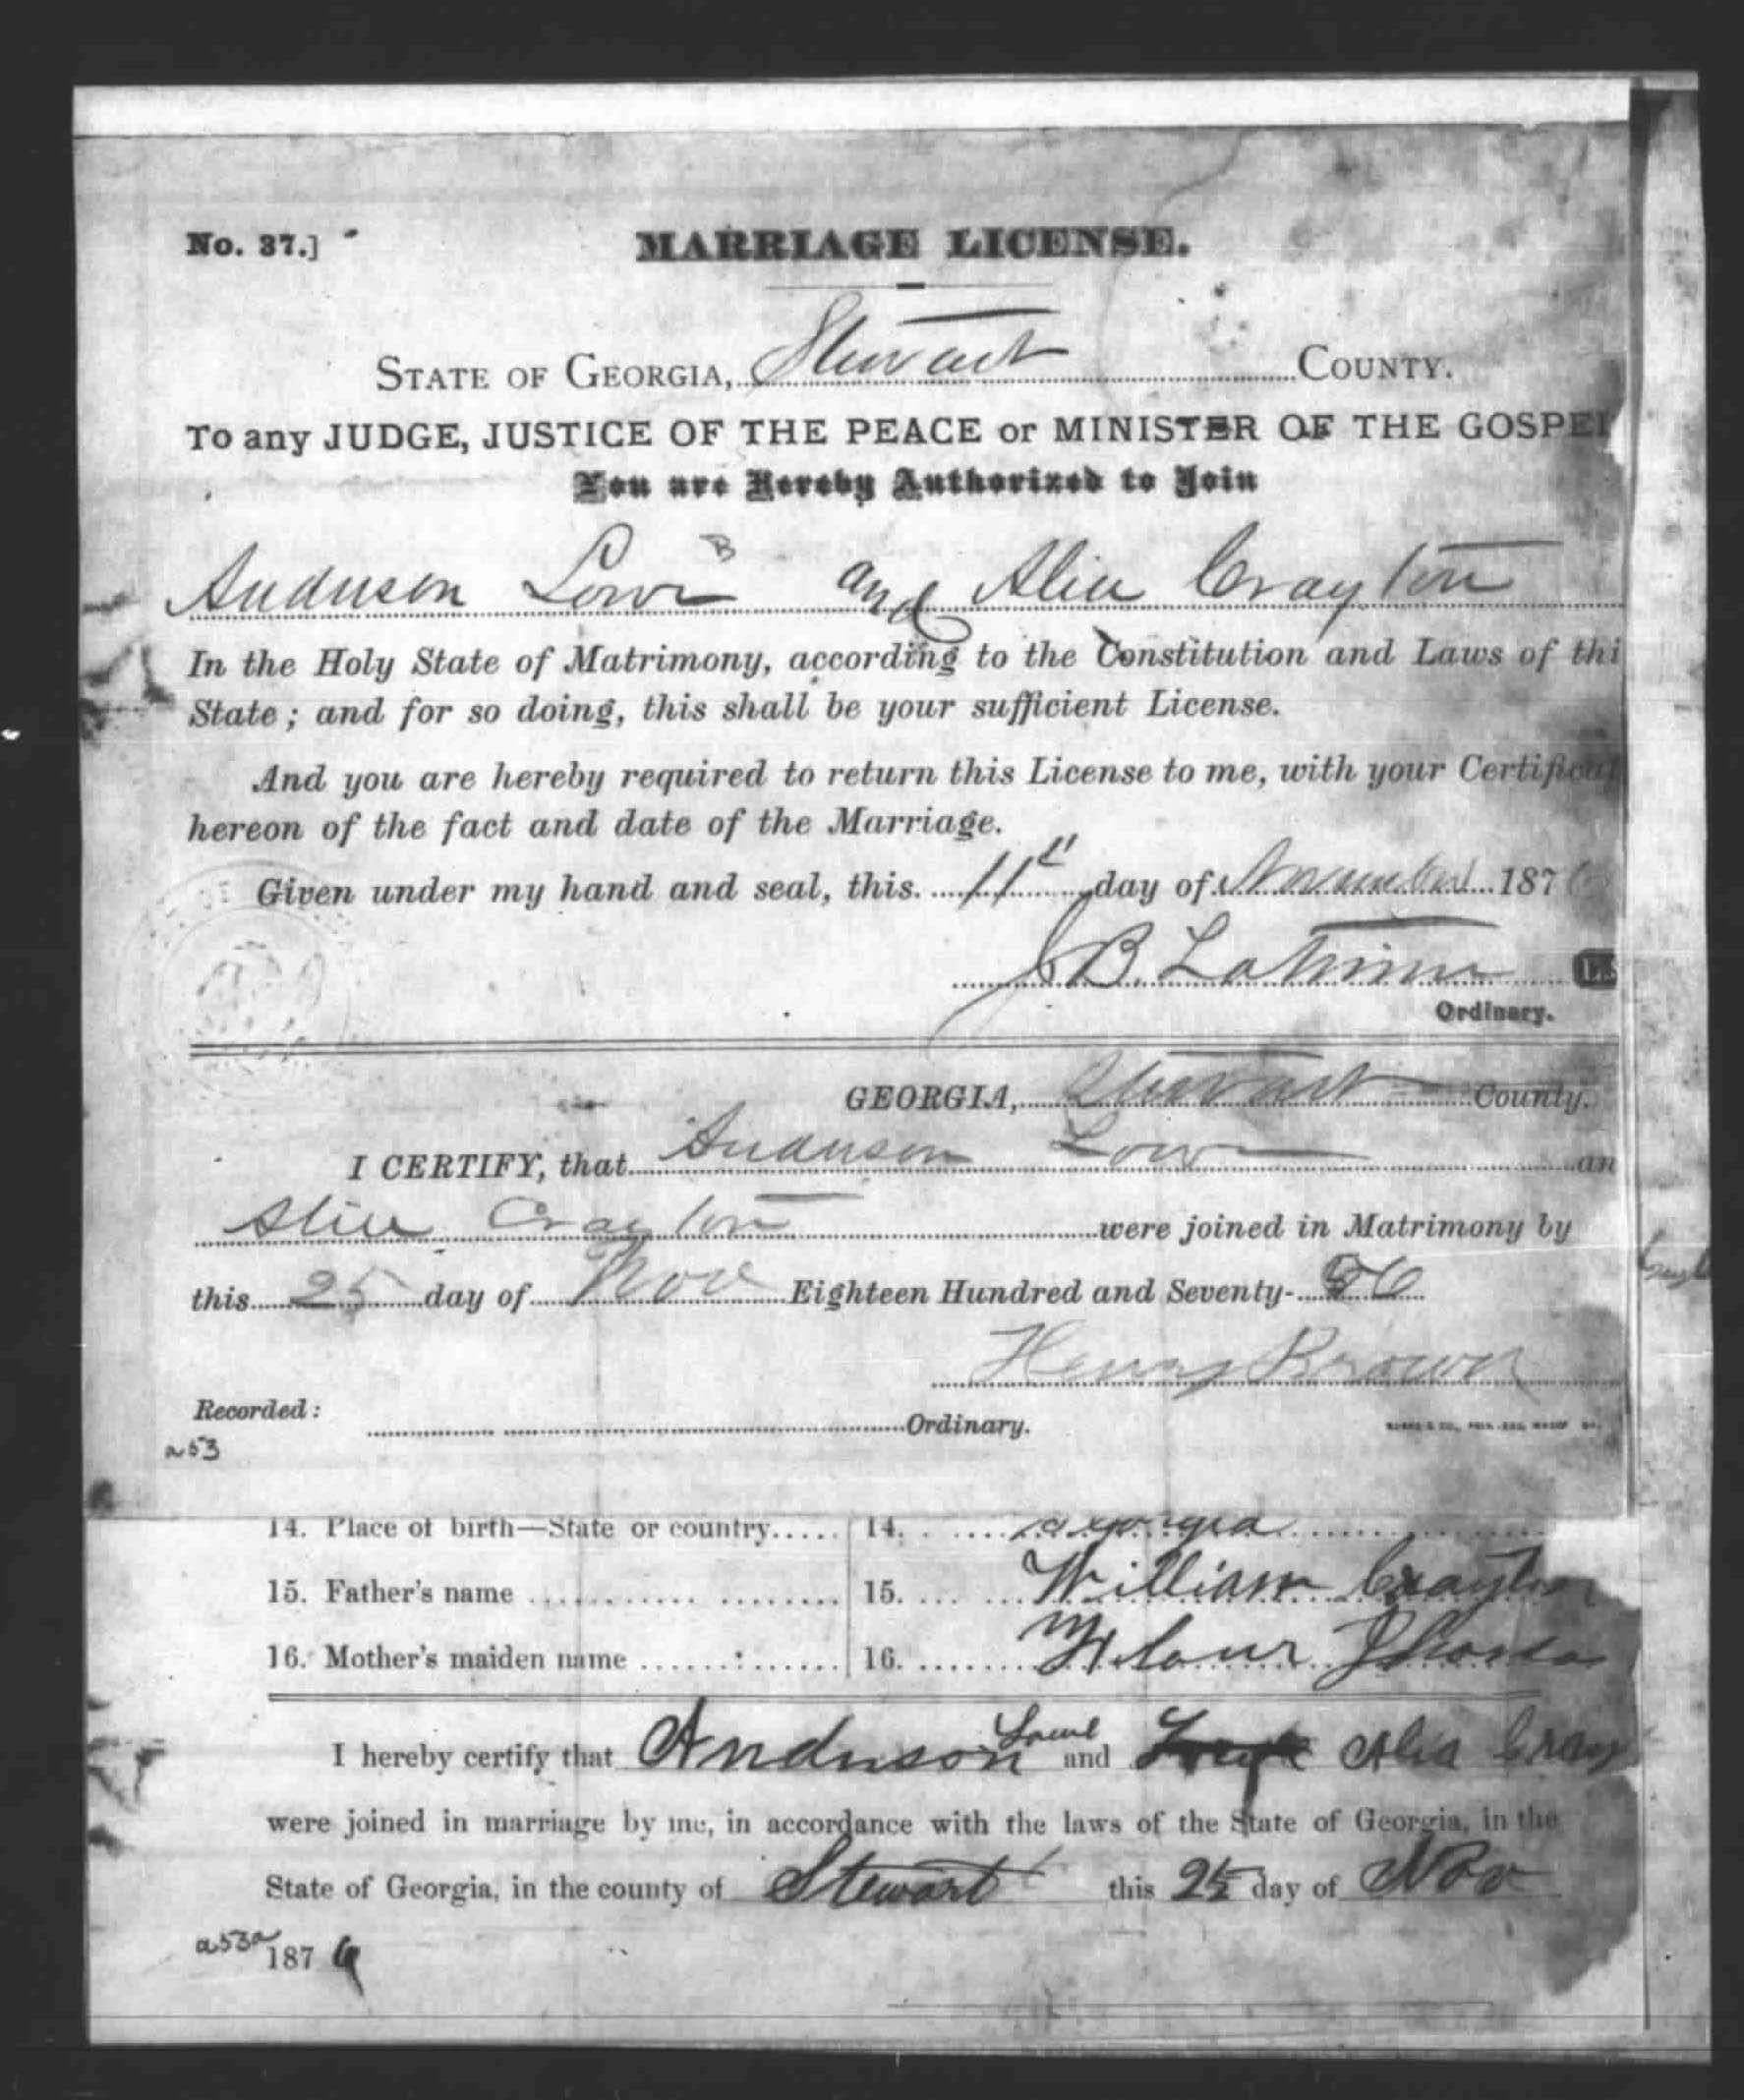 No. 37.]
MARRIAGE LICENSE.
STATE OF GEORGIA, Stewart COUNTY.
To any JUDGE, JUSTICE OF THE PEACE or MINISTER OF THE GOSPEL
You are Hereby Authorized to Join
B
Anderson Lowe and Alice Crayton
In the Holy State of Matrimony, according to the Constitution and Laws of thi
State; and for so doing, this shall be your sufficient License.
And you are hereby required to return this License to me, with your Certificat
hereon of the fact and date of the Marriage.
Given under my hand and seal, this 11" day of November 1876
J B. Latimer L.S
Ordinary.
GEORGIA, Stewart County.
I CERTIFY, that Anderson Lowe an
Alice Crayton were joined in Matrimony by
this 25 day of Nov Eighteen Hundred and Seventy- 6
Henry Brown
Recorded:
Ordinary.
a53
14. Place of birth—State or country 14. Georgia
15. Father's name 15. William Crayton
16. Mother's maiden name 16.
I hereby certify that Anderson Lowe and Alice Cray
were joined in marriage by me, in accordance with the laws of the State of Georgia, in the
State of Georgia, in the county of Stewart this 25 day of Nov
a53a
1876